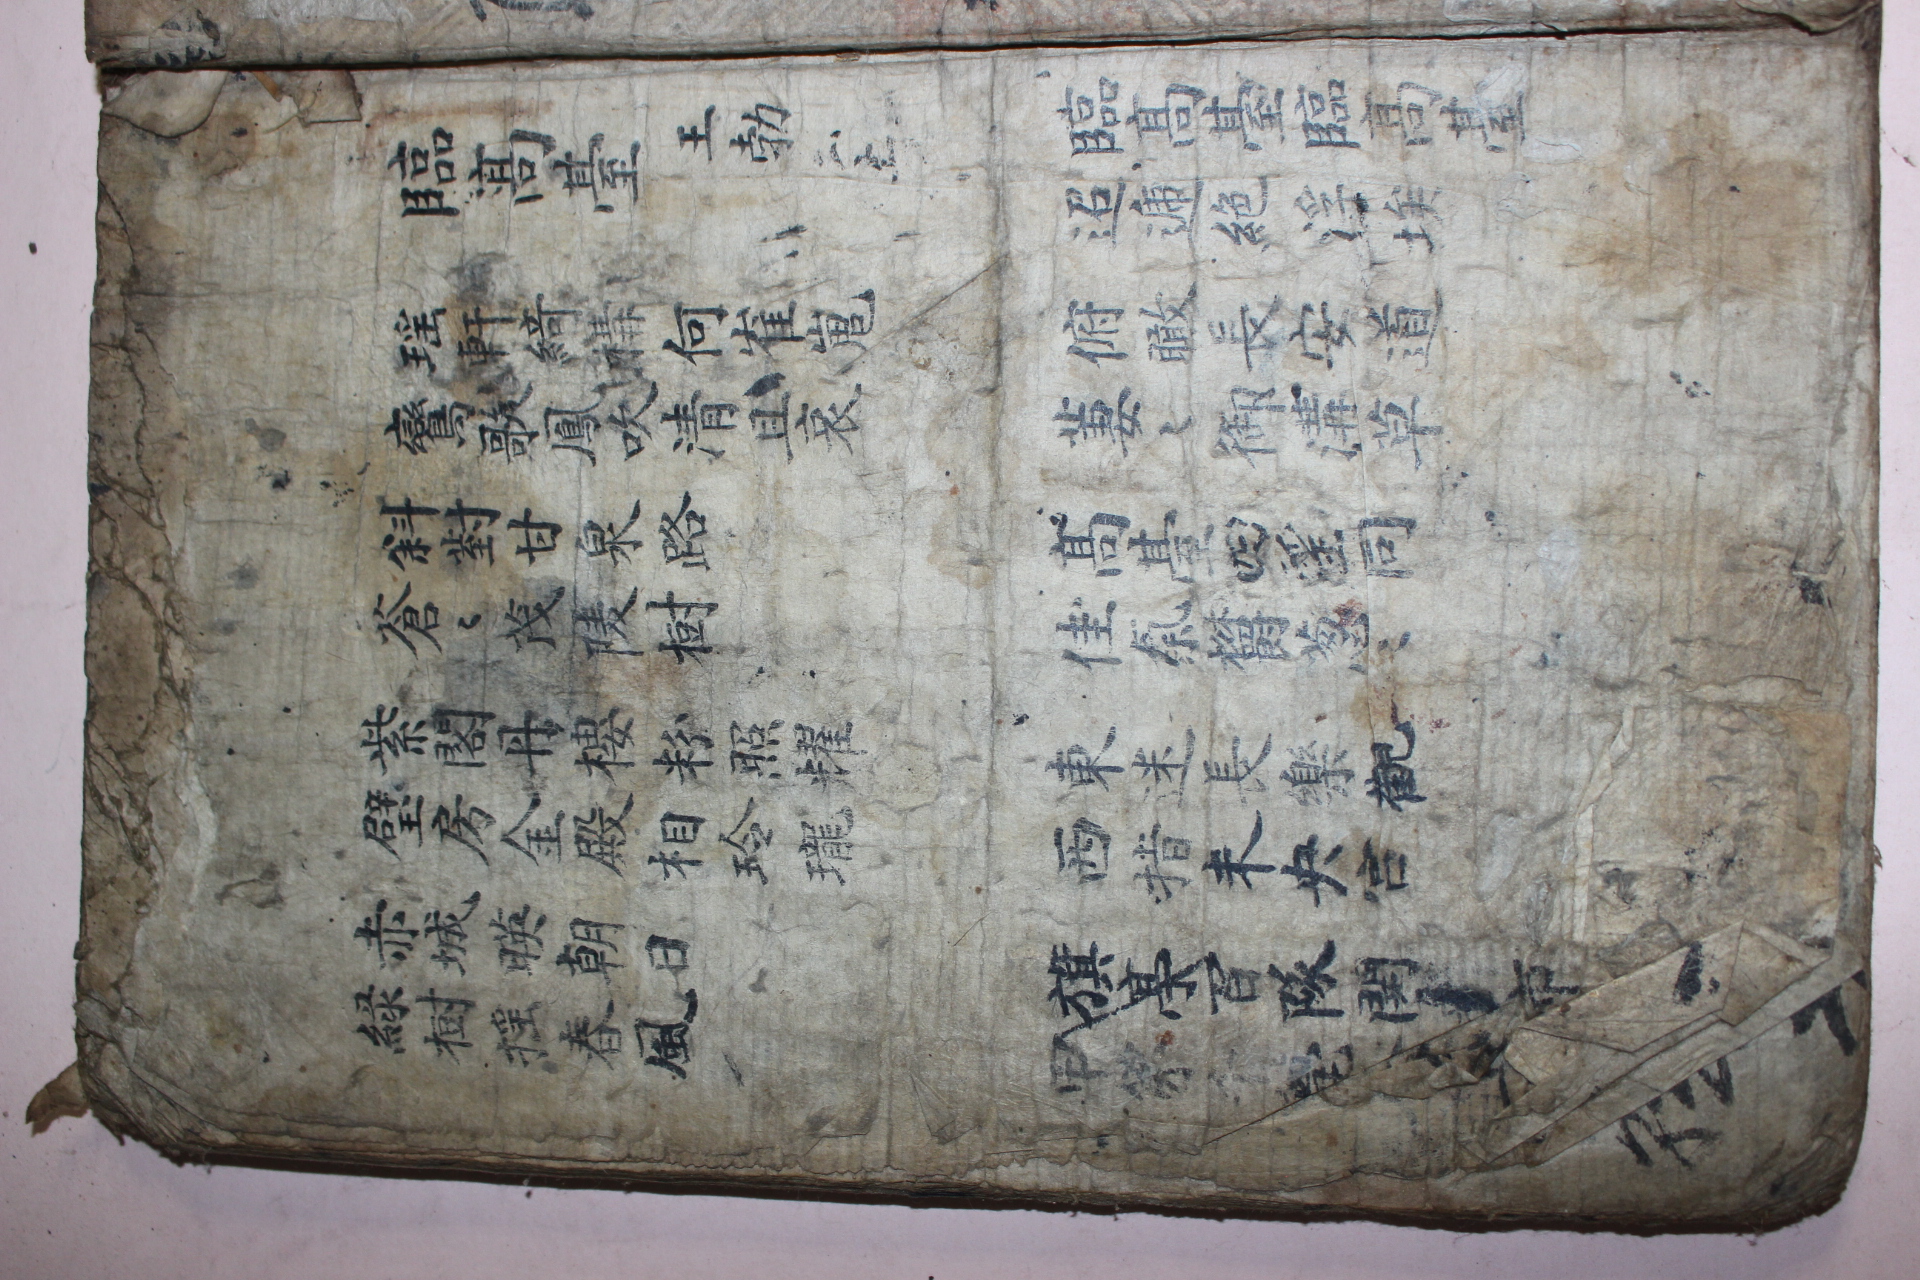 臨高臺 王勃
臨高臺臨高臺
迢遞絕浮埃
瑤軒綺構何崔嵬
鸞歌鳳吹清且哀
俯瞰長安道
萋〻御溝草
斜對甘泉路
蒼〻茂陵樹
高臺四望同
佳氣欝葱〻
紫閣丹樓粉照耀
璧房金殿相玲瓏
東迷長樂觀
西指未央宮
赤城暎朝日
綠樹搖春風
旗亭百隊開 市
甲第